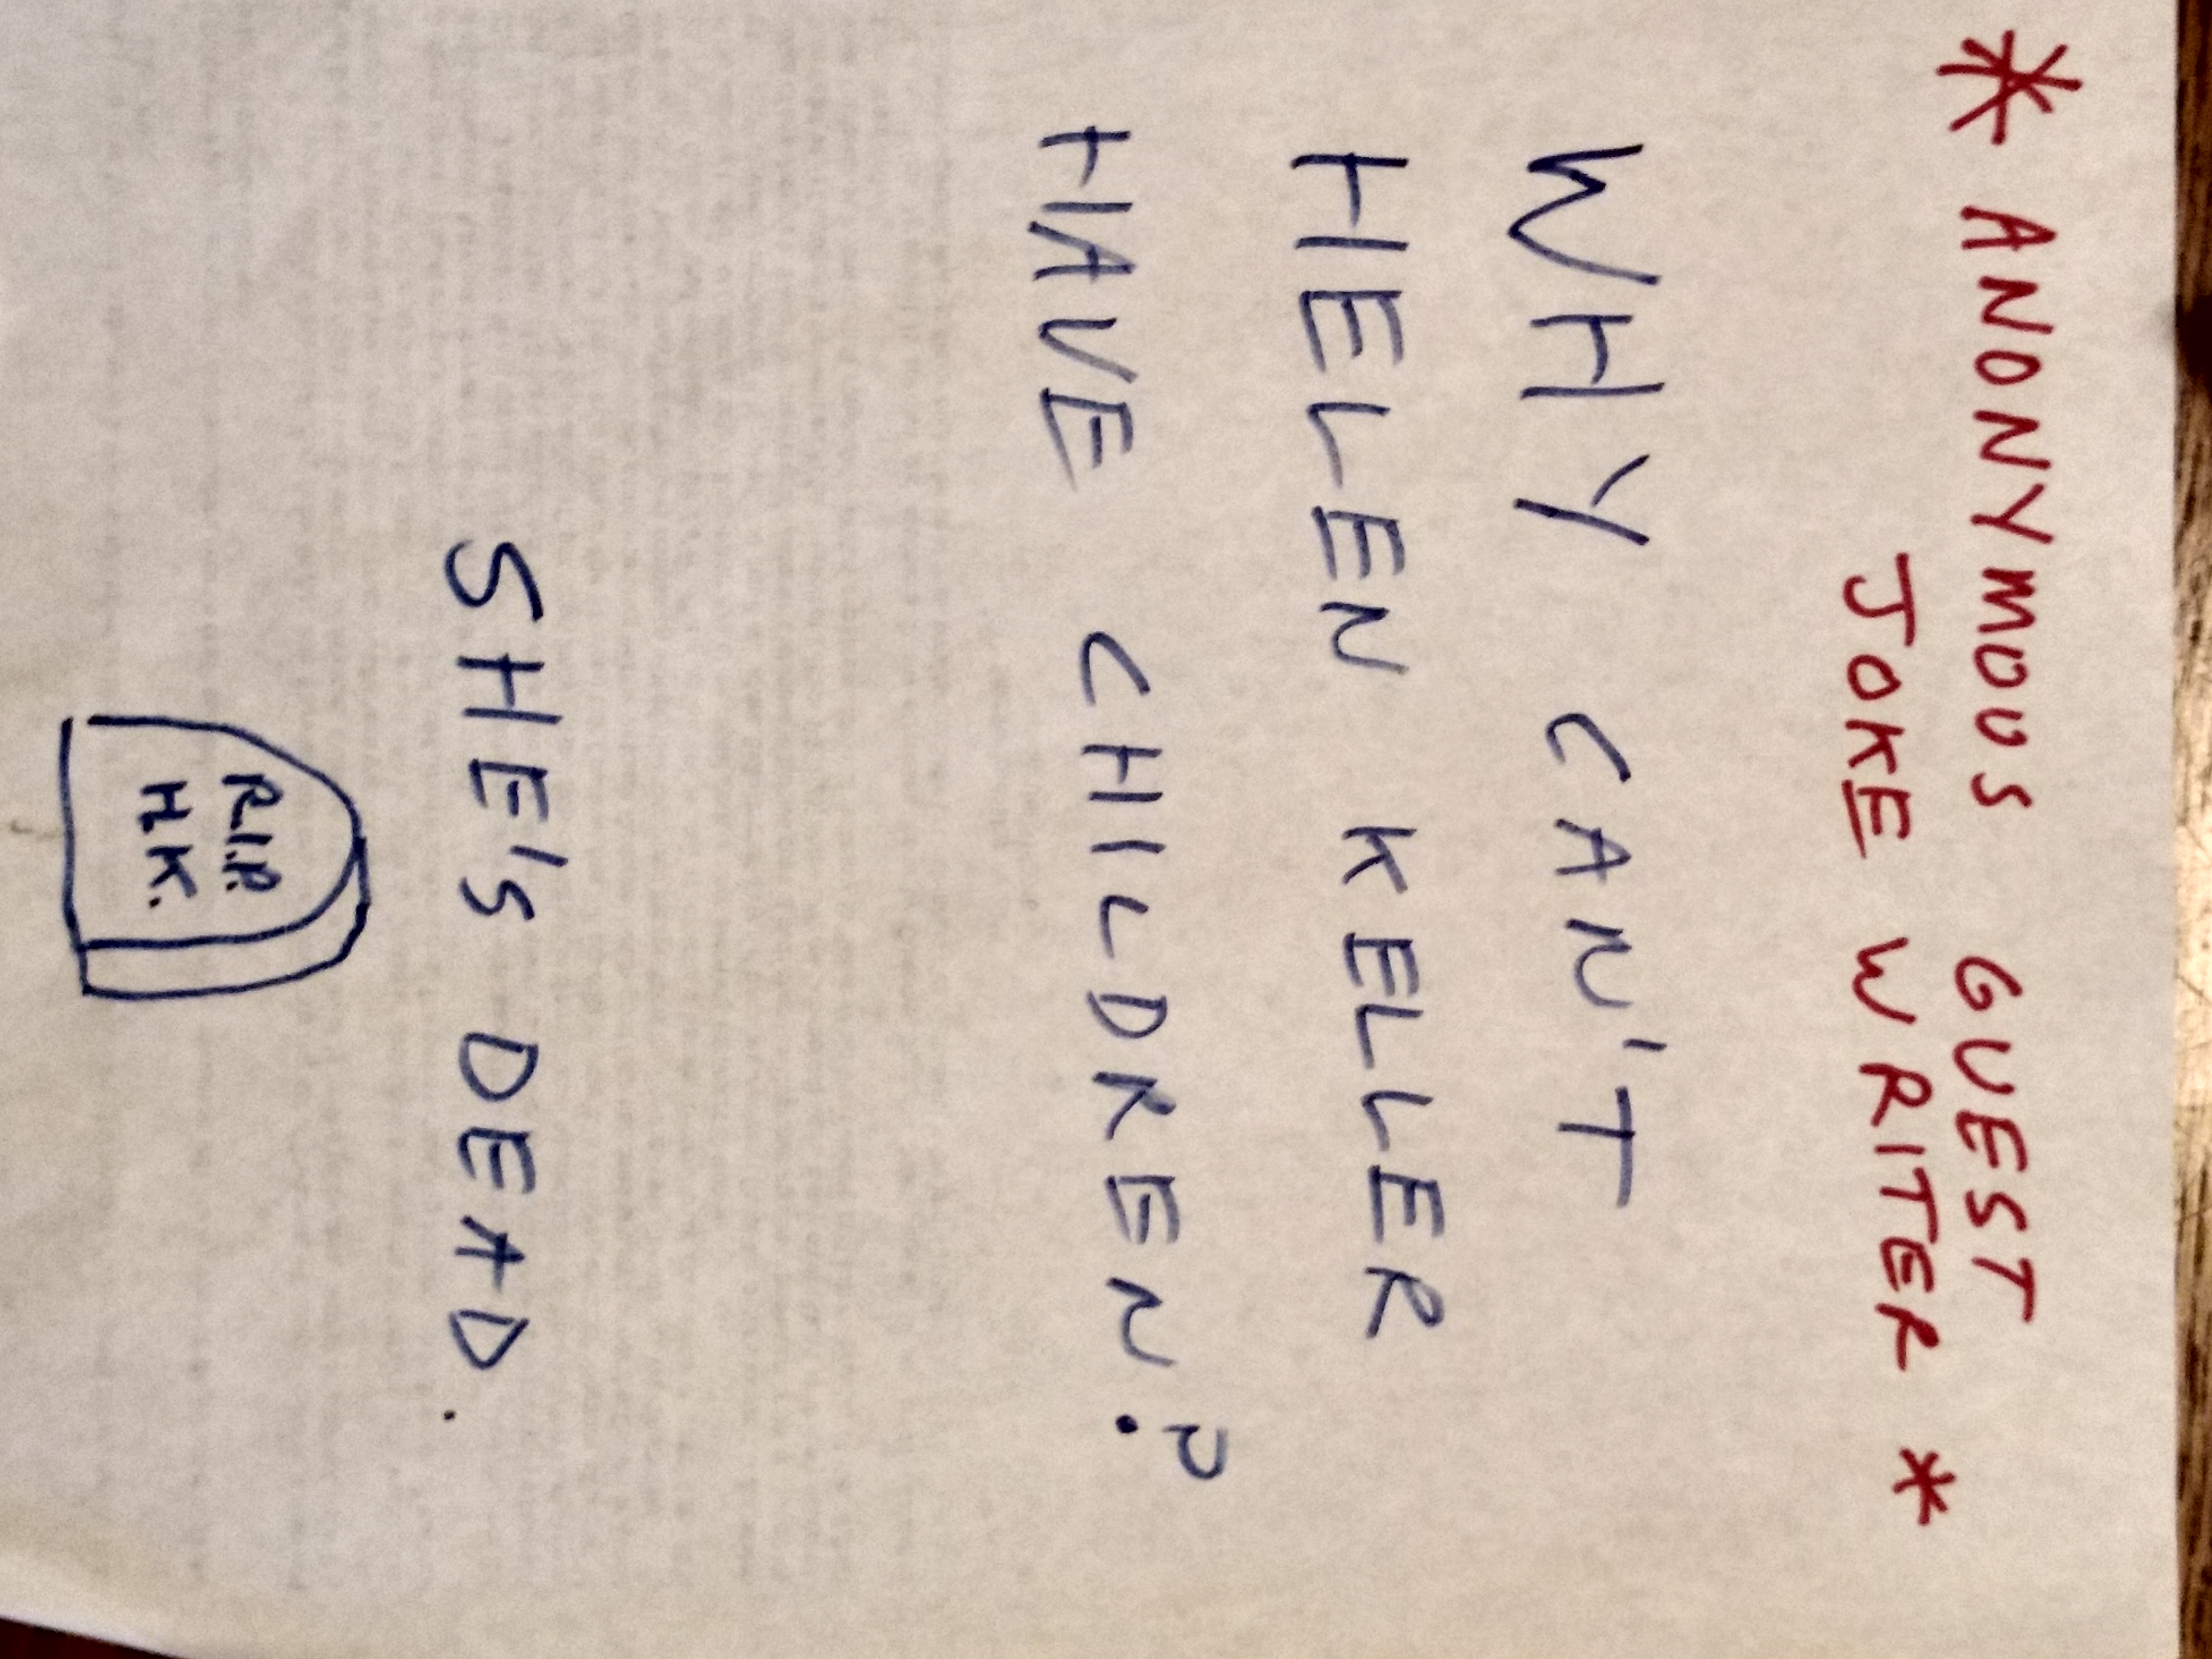 * ANONYMOUS GUEST
JOKE WRITER *
WHY CAN'T
HELEN KELLER
HAVE CHILDREN?
SHE'S DEAD.
R.I.P.
H.K.